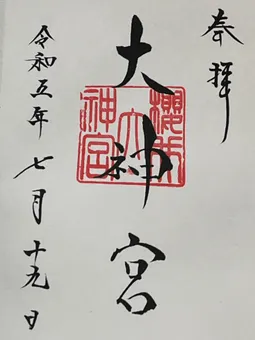 奉拝
大神宮
櫻木
大
神宮
令和五年七月十九日